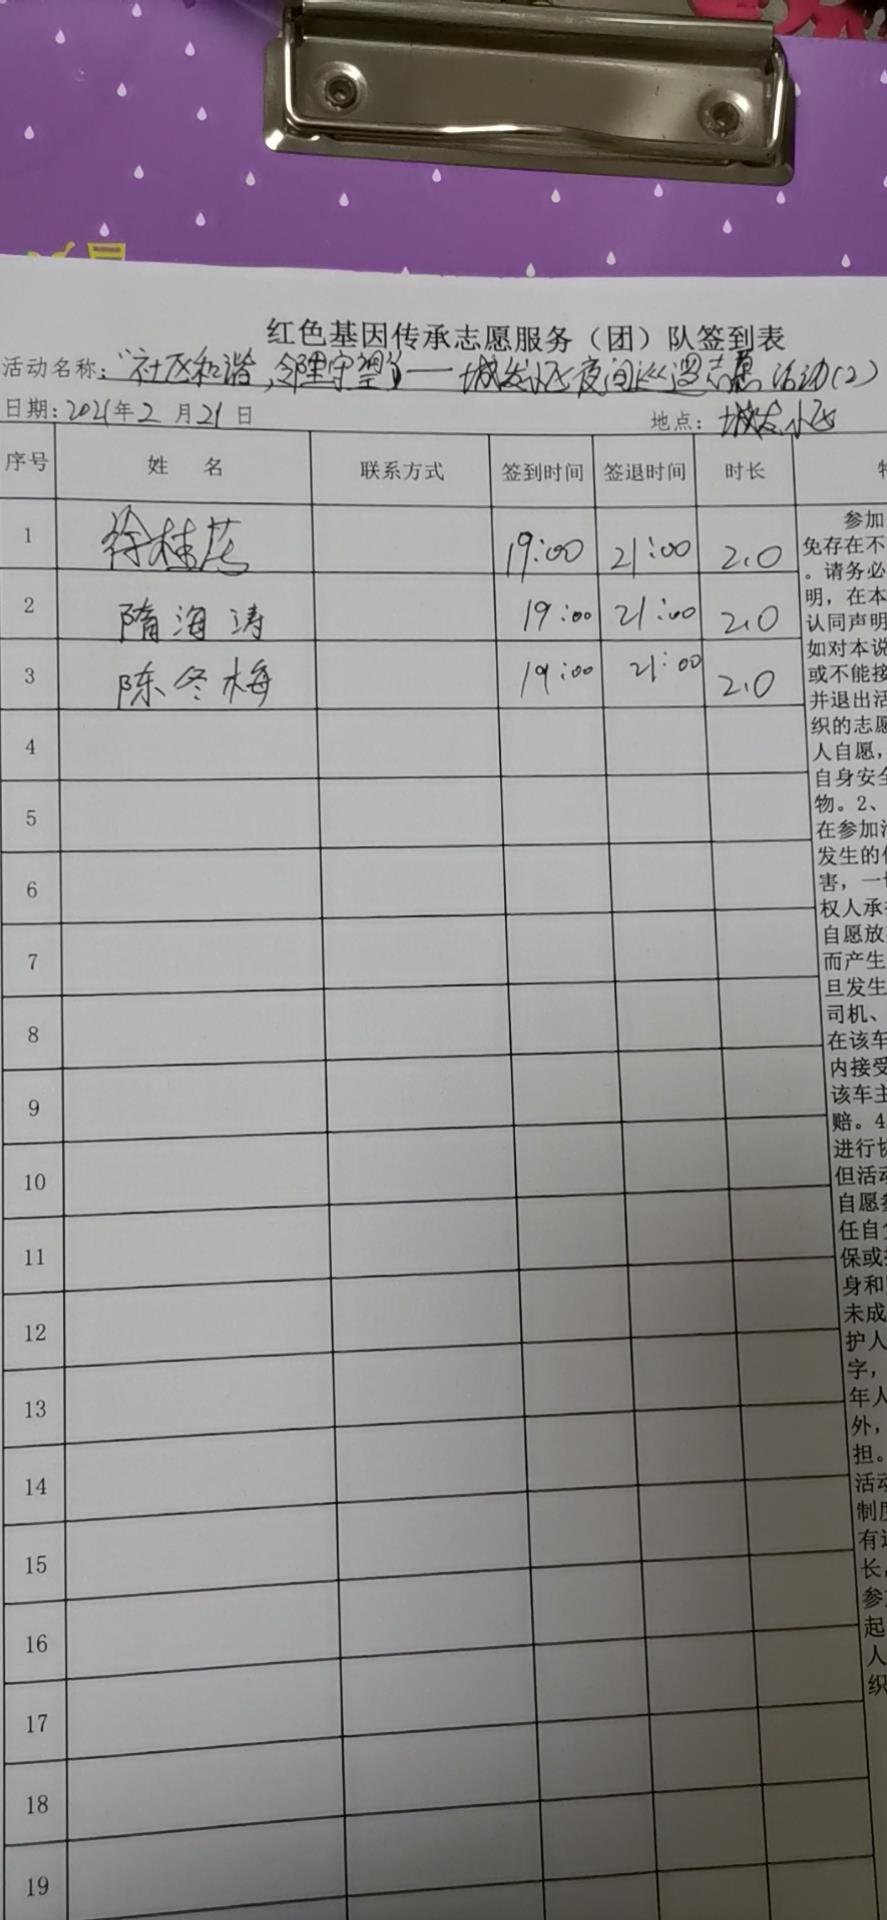 红色基因传承志愿服务（团）队签到表
活动名称：“社区和谐，邻里守望”——城发小区夜间巡逻志愿活动（2）
日期：2021年2月21日 地点：城发小区
序号 姓 名 联系方式 签到时间 签退时间 时长 特
1 徐桂花 19:00 21:00 2.0
2 隋海涛 19:00 21:00 2.0
3 陈冬梅 19:00 21:00 2.0
4
5
6
7
8
9
10
11
12
13
14
15
16
17
18
19
参加
免存在不
。请务必
明，在本
认同声明
如对本说
或不能接
并退出活
织的志愿
人自愿，
自身安全
物。2、
在参加活
发生的
害，一切
权人承
自愿放
而产生
旦发生
司机、
在该车
内接受
该车主
赔。4
进行协
但活动
自愿参
任自负
保或
身和
未成
护人
字，
年人
外，
担。
活动
制度
有
长，
参
起
人
织